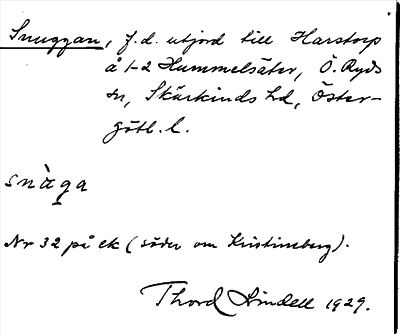 Snuggan, f.d. utjord till Harstorp
å 1-2 Hummelsäter, Ö. Ryds
sn, Skärkinds hd, Öster-
götl. l.
snàga
Nr 32 på ek (söder om Kristineberg).
Thord Lindell 1929.